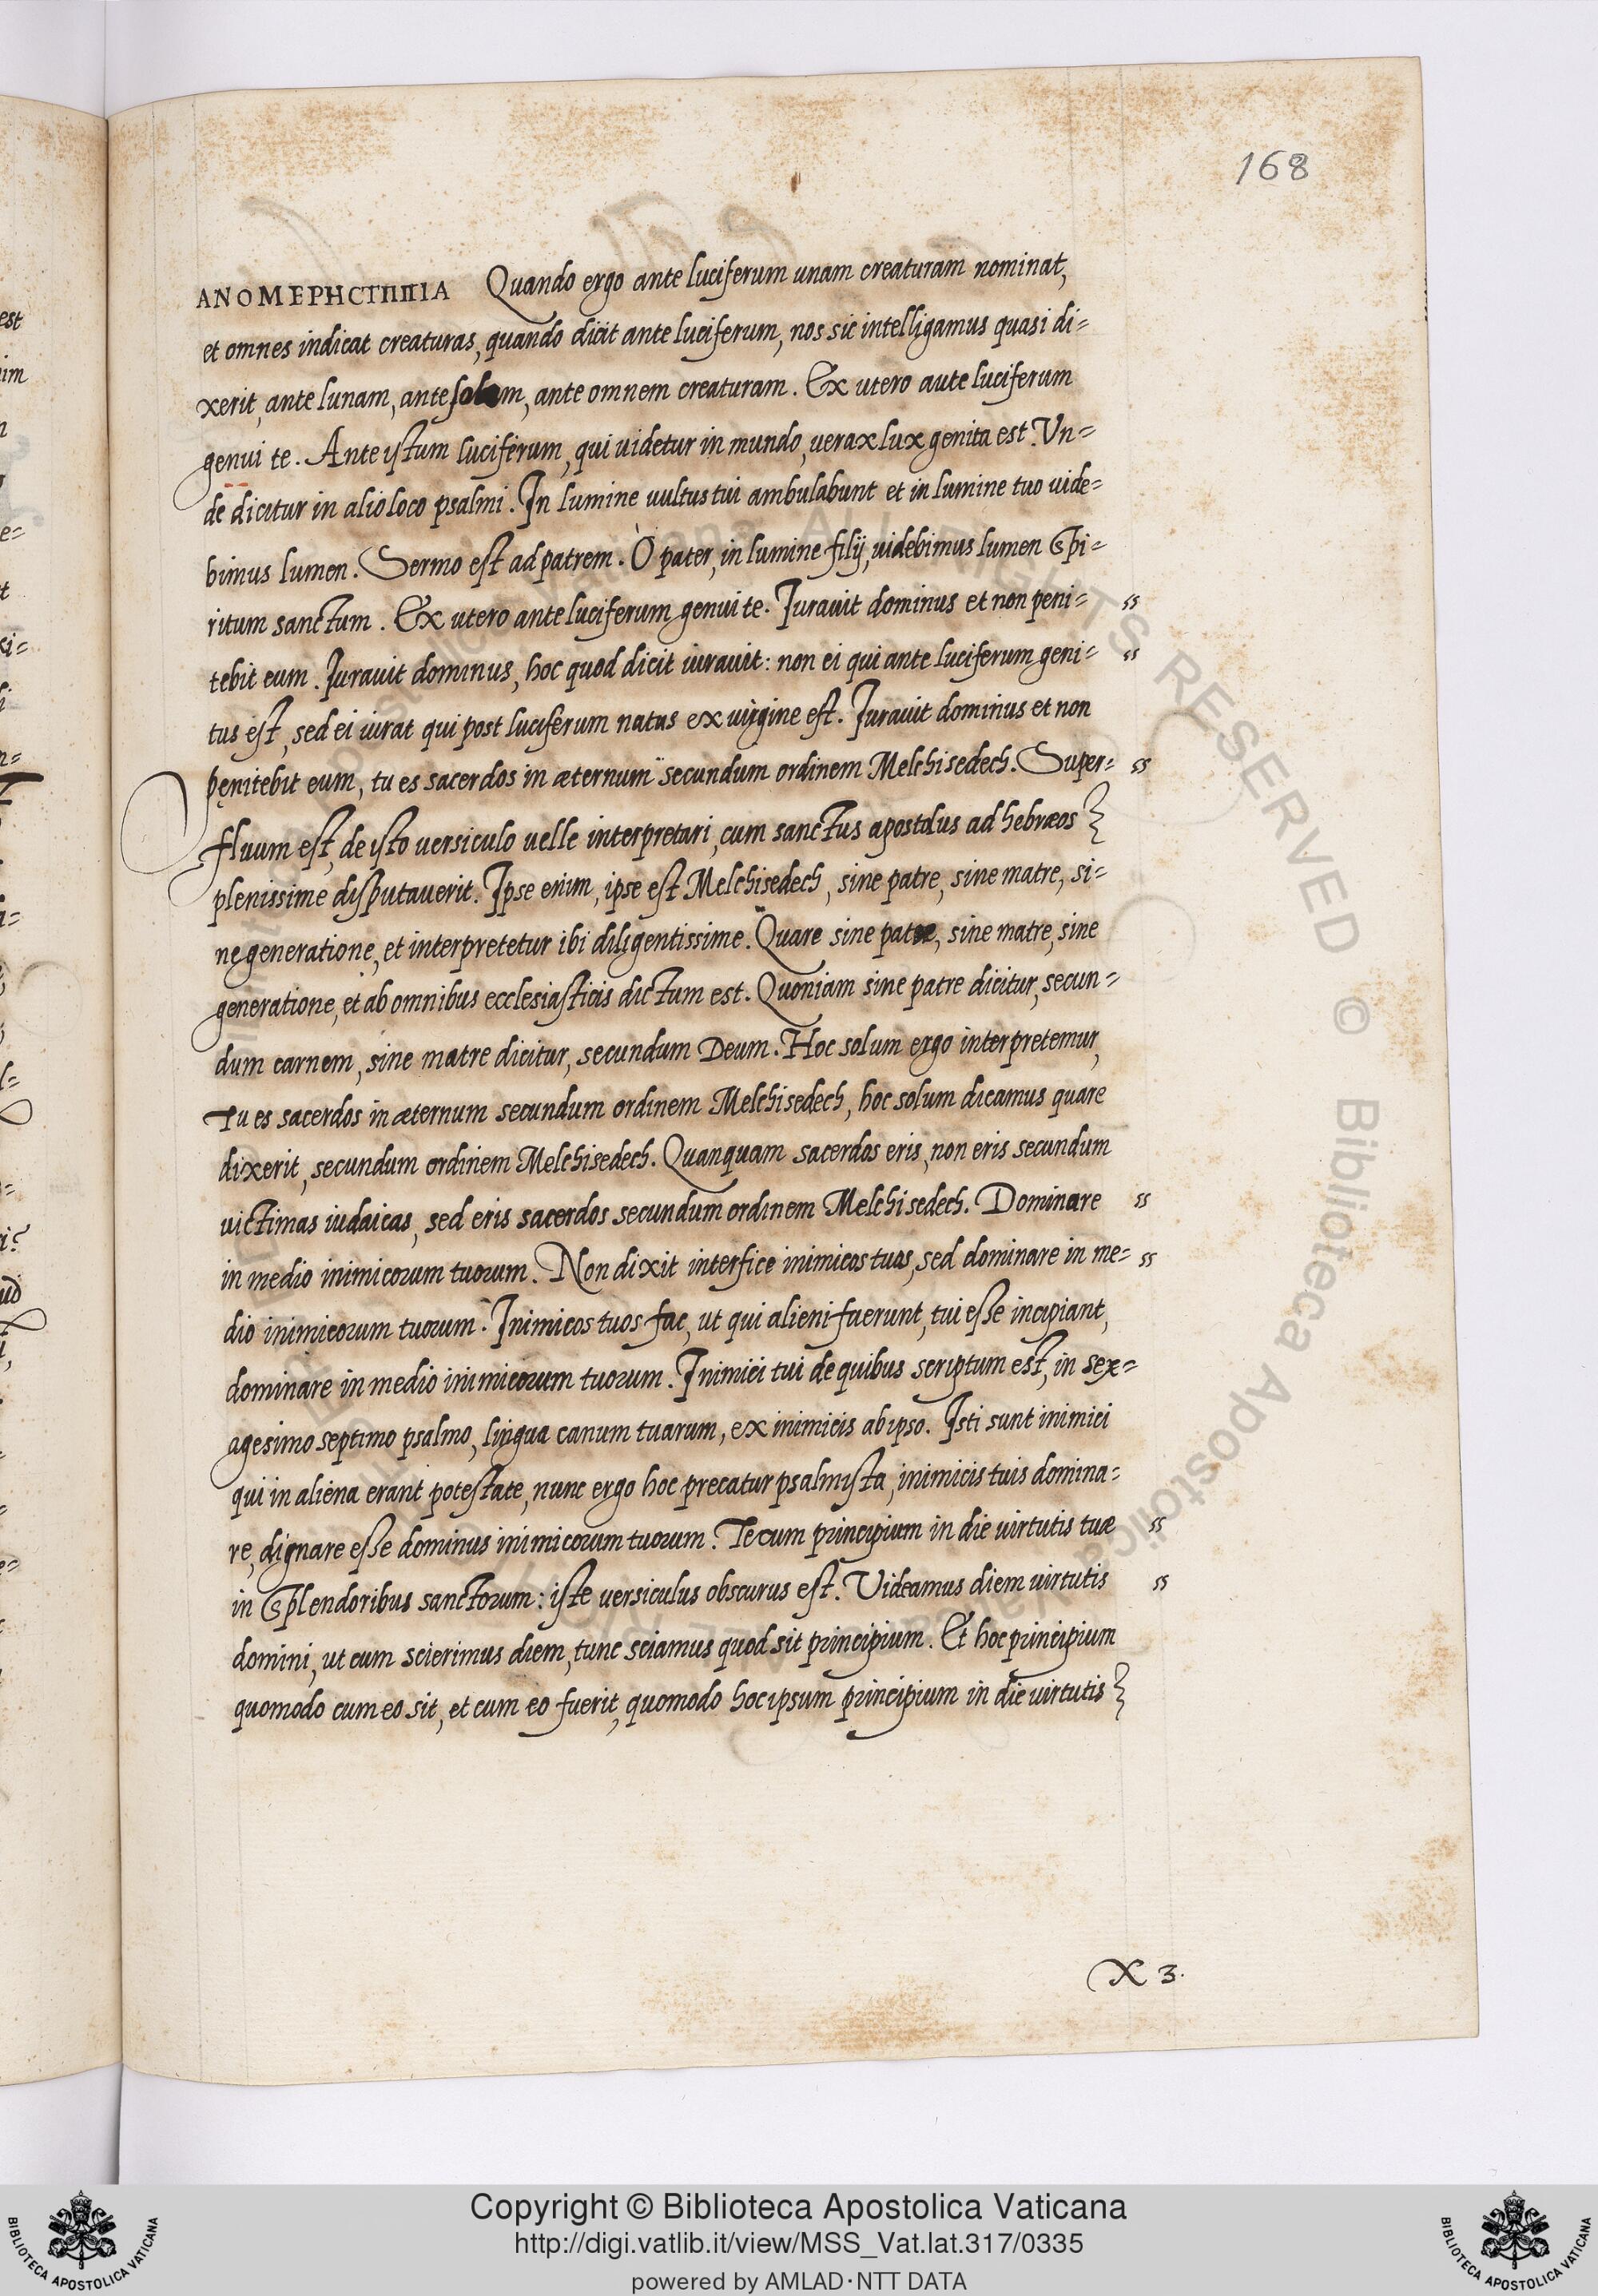 168
ANOMEPHCTΠΠIA Quando ergo ante luciferum unam creaturam nominat,
et omnes indicat creaturas, quando dicit ante luciferum, nos sic intelligamus quasi di=
xerit, ante lunam, ante solem, ante omnem creaturam. Ex utero ante luciferum
genui te. Ante istum luciferum, qui uidetur in mundo, uerax lux genita est. Vn=
de dicitur in alio loco psalmi. In lumine uultus tui ambulabunt et in lumine tuo uide=
bimus lumen. Sermo est ad patrem. O pater, in lumine filij, uidebimus lumen Spi=
ritum sanctum. Ex utero ante luciferum genui te. Iurauit dominus et non peni= ss
tebit eum. Iurauit dominus, hoc quod dicit iurauit: non ei qui ante luciferum geni= ss
tus est, sed ei iurat qui post luciferum natus ex uirgine est. Iurauit dominus et non
penitebit eum, tu es sacerdos in æternum secundum ordinem Melchisedech. Super= ss
fluum est, de isto uersiculo uelle interpretari, cum sanctus apostolus ad hebræos
plenissime disputauerit. Ipse enim, ipse est Melchisedech, sine patre, sine matre, si=
ne generatione, et interpretetur ibi diligentissime. Quare sine patre, sine matre, sine
generatione, et ab omnibus ecclesiasticis dictum est. Quoniam sine patre dicitur, secun=
dum carnem, sine matre dicitur, secundum Deum. Hoc solum ergo interpretemur,
Tu es sacerdos in æternum secundum ordinem Melchisedech, hoc solum dicamus quare
dixerit, secundum ordinem Melchisedech. Quanquam sacerdos eris, non eris secundum
uictimas iudaicas, sed eris sacerdos secundum ordinem Melchisedech. Dominare ss
in medio inimicorum tuorum. Non dixit interfice inimicos tuos, sed dominare in me= ss
dio inimicorum tuorum. Inimicos tuos fac, ut qui alieni fuerunt, tui esse incipiant,
dominare in medio inimicorum tuorum. Inimici tui de quibus scriptum est, in sex=
agesimo septimo psalmo, lingua canum tuarum, ex inimicis ab ipso. Isti sunt inimici
qui in aliena erant potestate, nunc ergo hoc precatur psalmista, inimicis tuis domina=
re, dignare esse dominus inimicorum tuorum. Tecum principium in die uirtutis tuæ ss
in Splendoribus sanctorum: iste uersiculus obscurus est. Uideamus diem uirtutis ss
domini, ut cum scierimus diem, tunc sciamus quod sit principium. Et hoc principium
quomodo cum eo sit, et cum eo fuerit, quomodo hoc ipsum principium in die uirtutis
X 3.
Copyright © Biblioteca Apostolica Vaticana
http://digi.vatlib.it/view/MSS_Vat.lat.317/0335
powered by AMLAD·NTT DATA